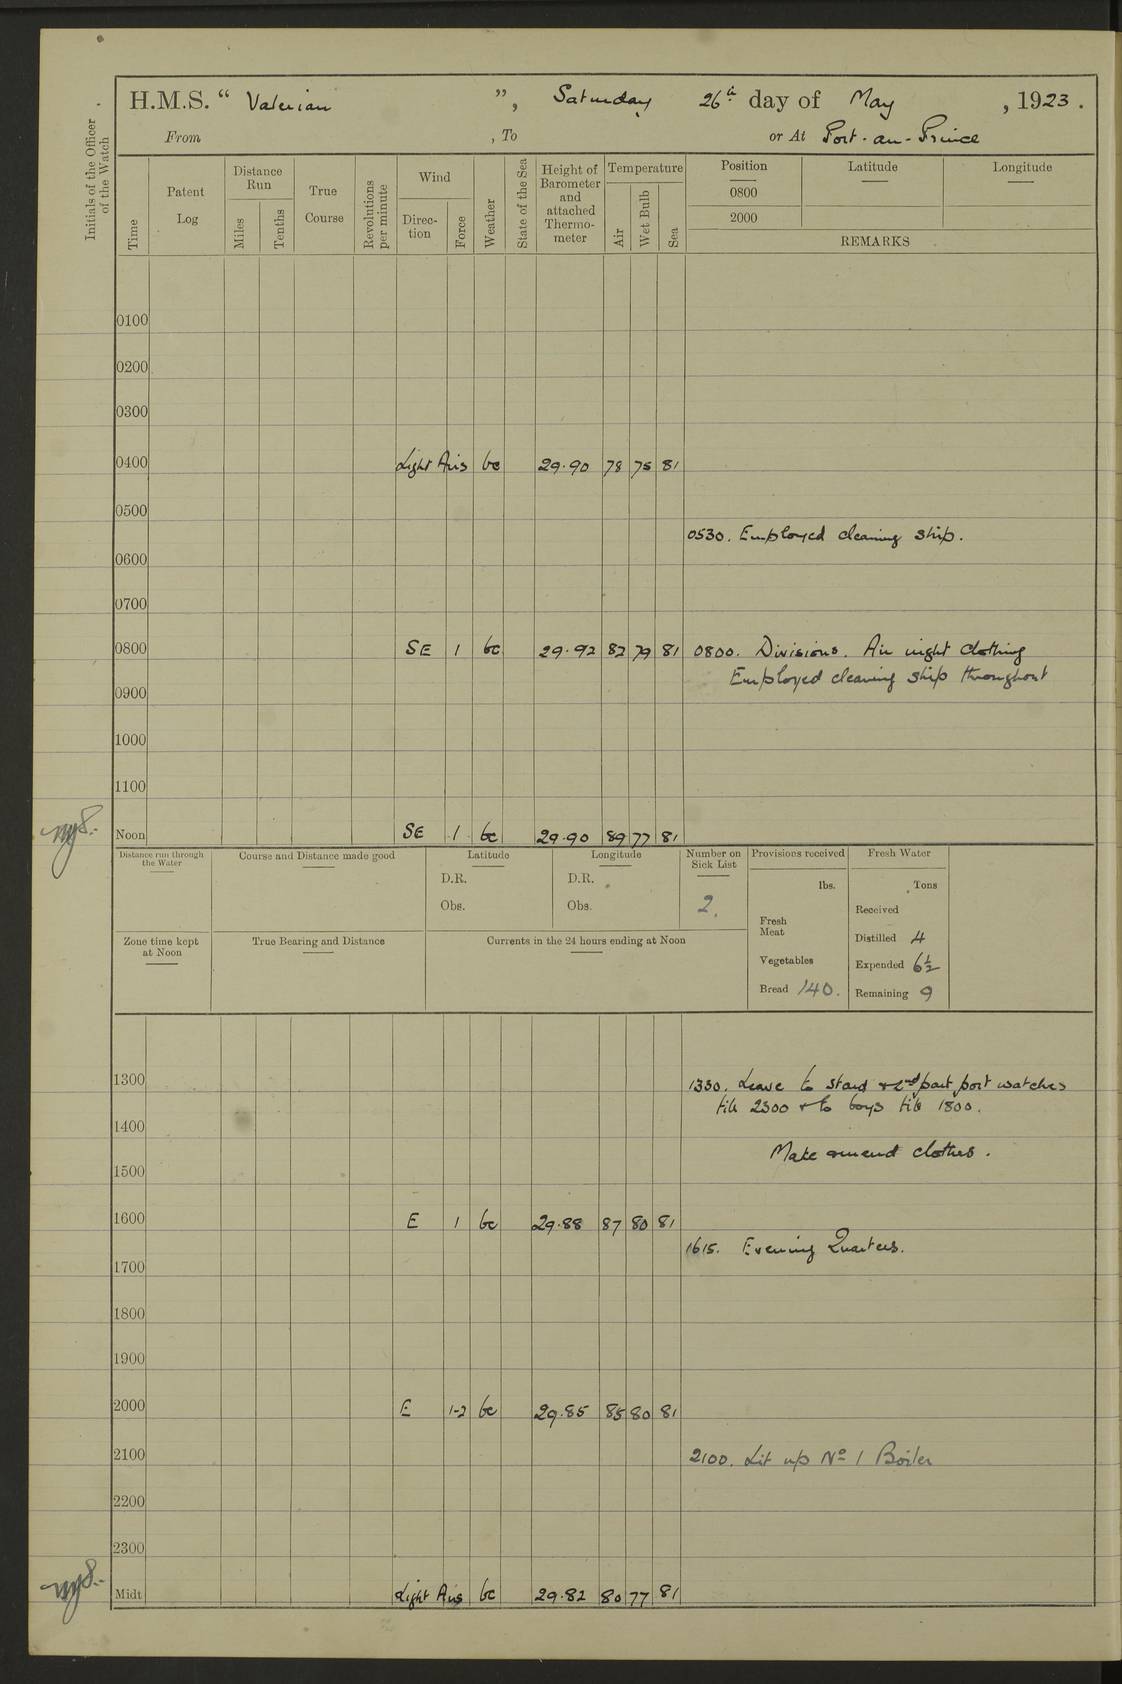 H.M.S. “ Valerian ”, Saturday 26th day of May , 1923 .
From , To or At Port-au-Prince
Initials of the Officer of the Watch
Time
Patent Log
Distance Run
Miles
Tenths
True Course
Revolutions per minute
Wind
Direc-tion
Force
Weather
State of the Sea
Height of Barometer and attached Thermo-meter
Temperature
Air
Wet Bulb
Sea
Position Latitude Longitude
0800
2000
REMARKS
0100
0200
0300
0400 Light Airs bc 29.90 78 75 81
0500
0530. Employed cleaning ship.
0600
0700
0800 SE 1 bc 29.92 82 79 81 0800. Divisions. Air night clothing
Employed cleaning ship throughout
0900
1000
1100
Noon SE 1 bc 29.90 89 77 81
Distance run through the Water
Course and Distance made good
Latitude
D.R.
Obs.
Longitude
D.R.
Obs.
Number on Sick List
2.
Provisions received
lbs.
Fresh Meat
Vegetables
Bread 140.
Fresh Water
Tons
Received
Distilled 4
Expended 6½
Remaining 9
Zone time kept at Noon
True Bearing and Distance
Currents in the 24 hours ending at Noon
1300
1330. Leave to starbd & 2nd part port watches
till 2300 & to boys till 1800.
1400
Make & mend clothes.
1500
1600 E 1 bc 29.88 87 80 81
1615. Evening Quarters.
1700
1800
1900
2000 E 1-2 bc 29.85 85 80 81
2100
2100. Lit up No 1 Boiler
2200
2300
Midt Light Airs bc 29.82 80 77 81